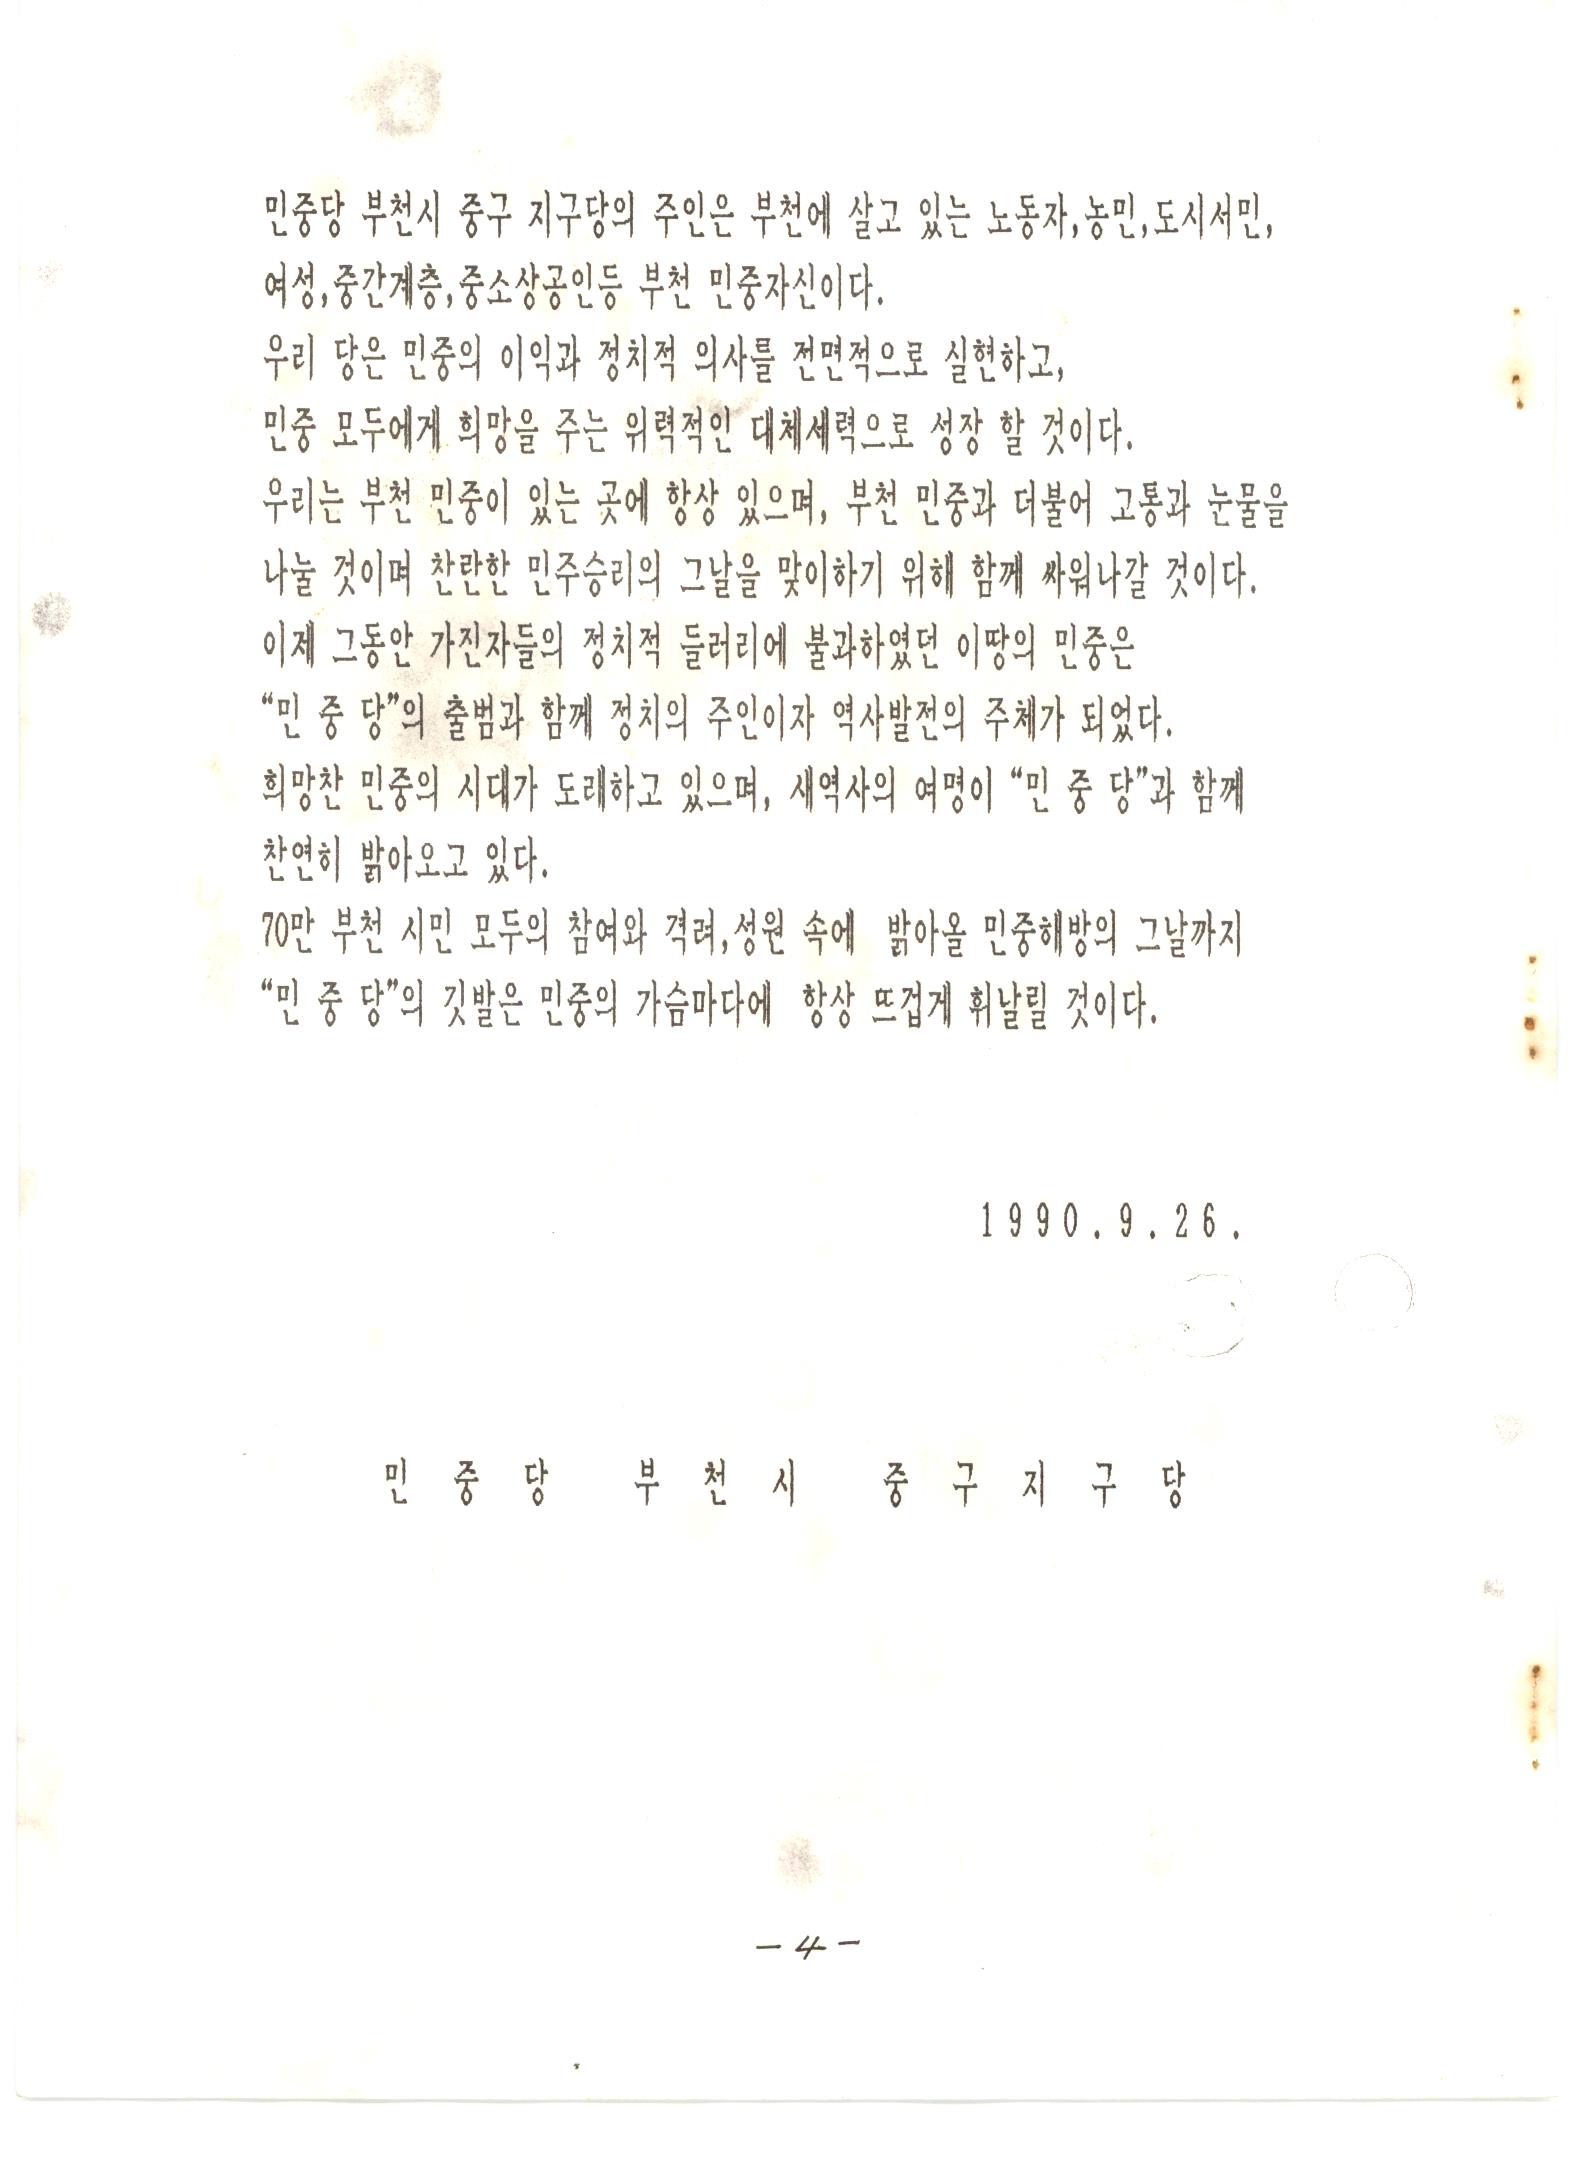 민중당 부천시 중구 지구당의 주인은 부천에 살고 있는 노동자,농민,도시서민,
여성,중간계층,중소상공인등 부천 민중자신이다.
우리 당은 민중의 이익과 정치적 의사를 전면적으로 실현하고,
민중 모두에게 희망을 주는 위력적인 대체세력으로 성장 할 것이다.
우리는 부천 민중이 있는 곳에 항상 있으며, 부천 민중과 더불어 고통과 눈물을
나눌 것이며 찬란한 민주승리의 그날을 맞이하기 위해 함께 싸워나갈 것이다.
이제 그동안 가진자들의 정치적 들러리에 불과하였던 이땅의 민중은
“민 중 당”의 출범과 함께 정치의 주인이자 역사발전의 주체가 되었다.
희망찬 민중의 시대가 도래하고 있으며, 새역사의 여명이 “민 중 당”과 함께
찬연히 밝아오고 있다.
70만 부천 시민 모두의 참여와 격려,성원 속에 밝아올 민중해방의 그날까지
“민 중 당”의 깃발은 민중의 가슴마다에 항상 뜨겁게 휘날릴 것이다.
1990.9.26.
민 중 당 부 천 시 중 구 지 구 당
- 4 -